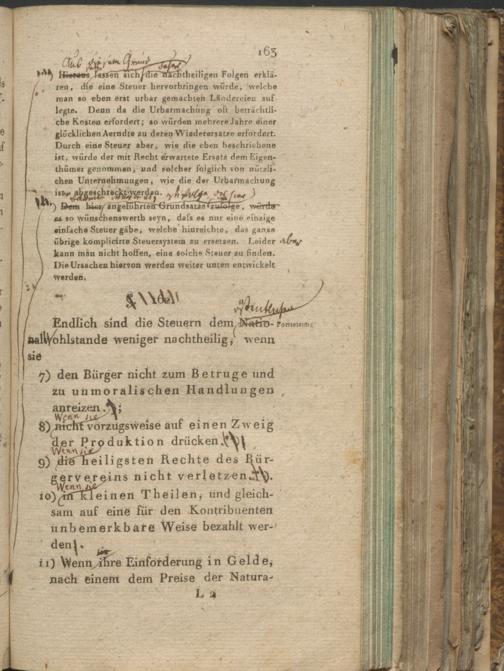 163
Aus diesem Grund
Hieraus lassen sich die nachtheiligen Folgen erklä-
ren, die eine Steuer hervorbringen würde, welche
man so eben erst urbar gemachten Ländereien auf
legte. Denn da die Urbarmachung oft beträchtli-
che Kosten erfordert; so würden mehrere Jahre einer
glücklichen Aerndte zu deren Wiederersatze erfordert.
Durch eine Steuer aber, wie die eben beschriebene
ist, würde der mit Recht erwartete Ersatz dem Eigen-
thümer genommen, und solcher folglich von nützli-
chen Unternehmungen, wie die der Urbarmachung
ist, abgeschreckt werden.
) Dem hier angeführten Grundsatze zufolge, würde
es so wünschenswerth seyn, daſs es nur eine einzige
einfache Steuer gäbe, welche hinreichte, das ganze
übrige komplicirte Steuersystem zu ersetzen. Leider aber
kann man nicht hoffen, eine solche Steuer zu finden.
Die Ursachen hiervon werden weiter unten entwickelt
werden.
Endlich sind die Steuern dem Natio-
nalwohlstande weniger nachtheilig, wenn
sie
7) den Bürger nicht zum Betruge und
zu unmoralischen Handlungen
anreizen.
Wenn sie
8) nicht vorzugsweise auf einen Zweig
der Produktion drücken.
Wenn sie
9) die heiligsten Rechte des Bür-
gervereins nicht verletzen.
Wenn sie
10) in kleinen Theilen, und gleich-
sam auf eine für den Kontribuenten
unbemerkbare Weise bezahlt wer-
den.
11) Wenn ihre Einforderung in Gelde,
nach einem dem Preise der Natura-
L 2